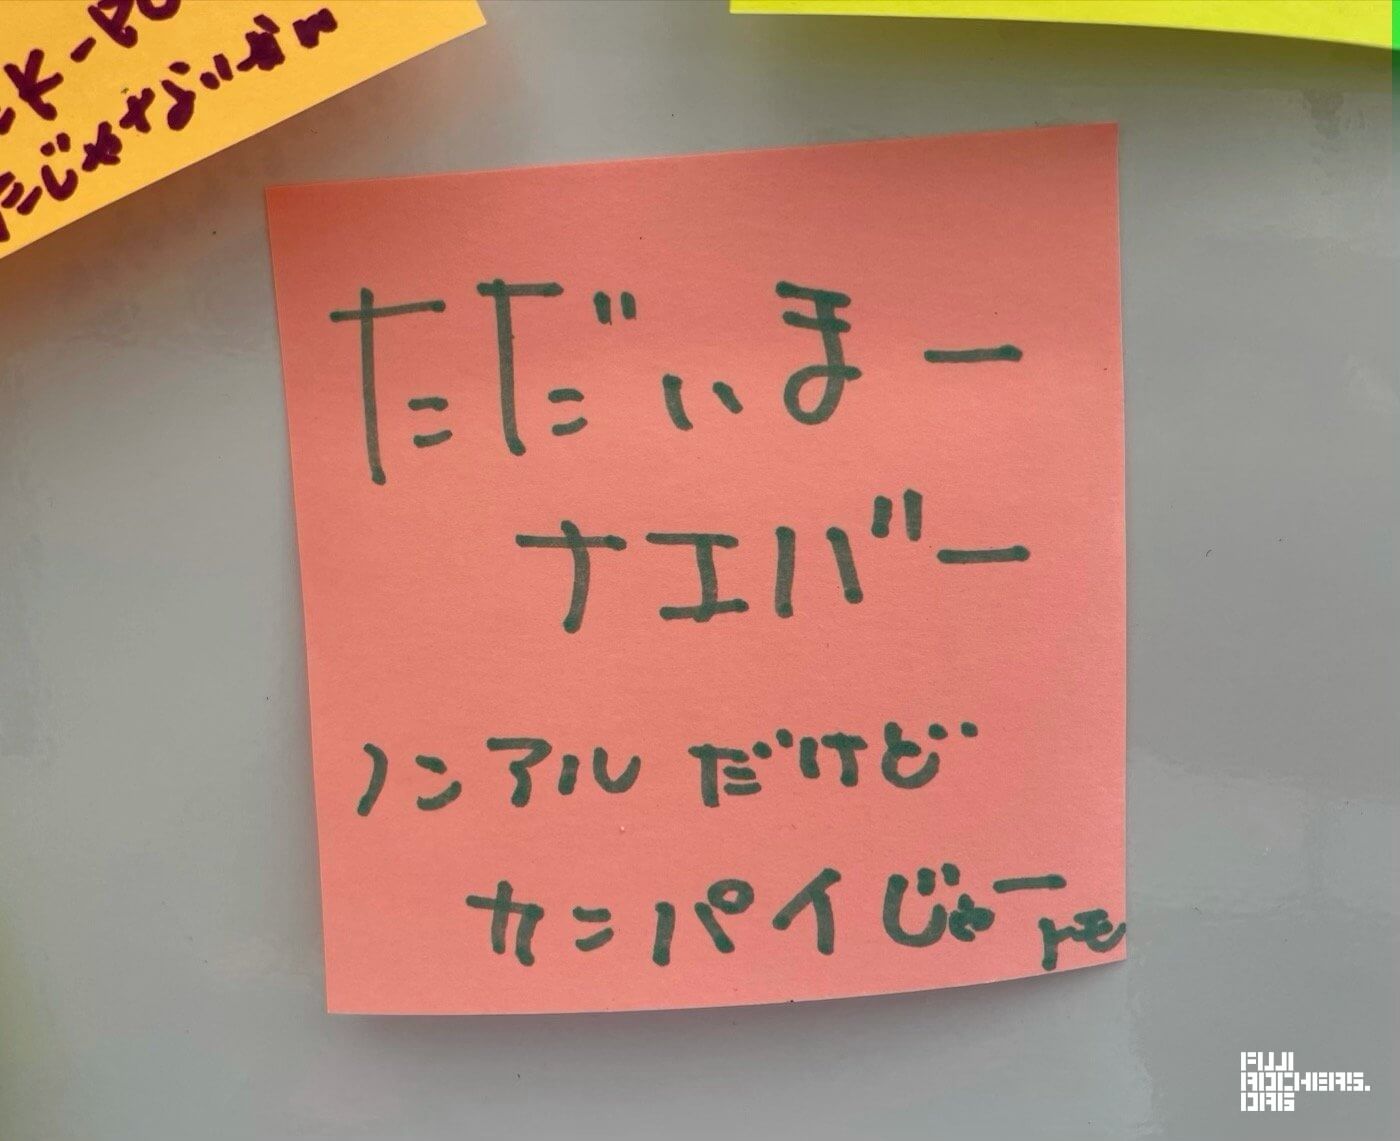 K-PO
だじゃないかw
ただいまー
ナエバー
ノンアルだけど
カンパイじゃー
トモ
FUJI
ROCKERS.
ORG